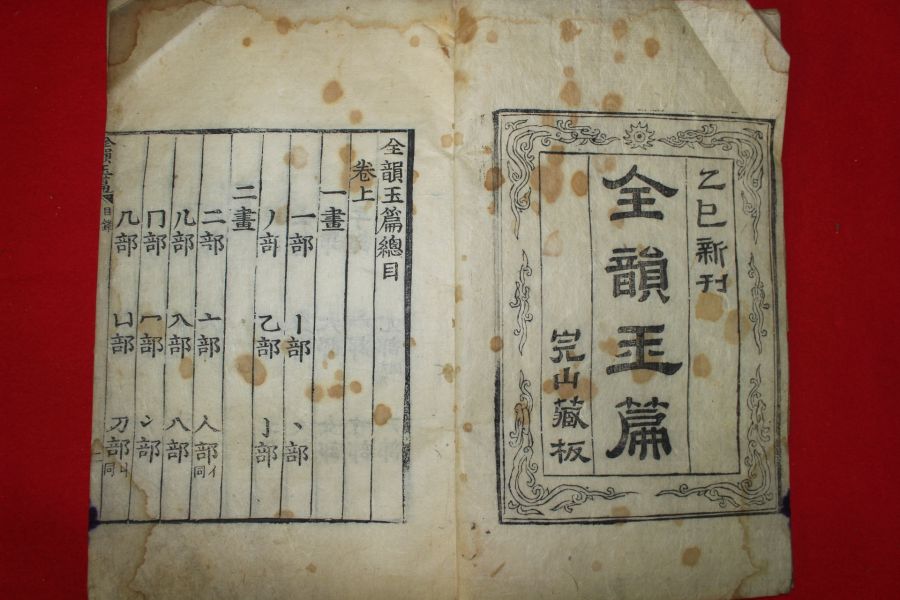 乙巳新刊
全韻玉篇
完山藏板
全韻玉篇總目
卷上
一畫
一部 丨部 丶部
丿部 乙部 亅部
二畫
二部 亠部 人部同亻
儿部 入部 八部
冂部 冖部 冫部
几部 凵部 刀部同刂
全韻玉篇 目錄